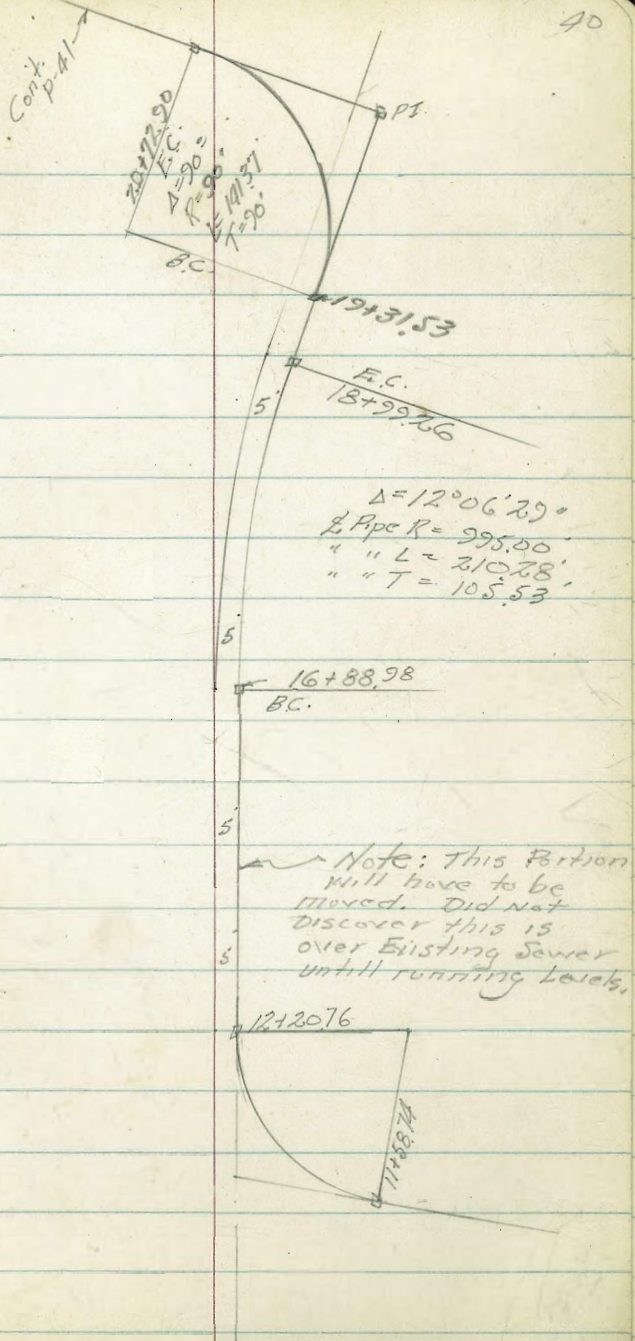 40
Cont.
p-41
PI.
20+72.90
E.C.
Δ=90°
R=90'
L=141.37
T=90'
B.C.
19+31.53
E.C.
18+99.26
5'
Δ=12°06'29"
℄ Pipe R= 995.00'
" " L = 210.28'
" " T = 105.53'
5'
16+88.98
B.C.
5'
Note: This Portion
will have to be
moved. Did Not
Discover this is
over Existing Sewer
untill running Levels.
5'
12+20.76
11+58.74